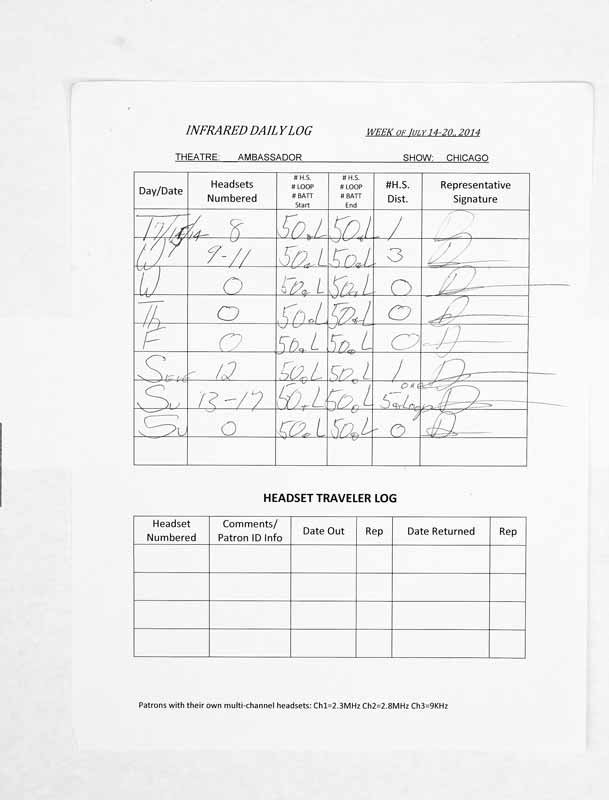 INFRARED DAILY LOG WEEK OF JULY 14-20, 2014
THEATRE: AMBASSADOR SHOW: CHICAGO
Day/Date Headsets Numbered # H.S. # LOOP # BATT Start # H.S. # LOOP # BATT End #H.S. Dist. Representative Signature
T 7/15/14 8 1
W 9-11 3
W 0 0
Th 0 0
F 0 0
S EVE 12 1
Su 13-17 5
Su 0 0
HEADSET TRAVELER LOG
Headset Numbered Comments/ Patron ID Info Date Out Rep Date Returned Rep
Patrons with their own multi-channel headsets: Ch1=2.3MHz Ch2=2.8MHz Ch3=9KHz